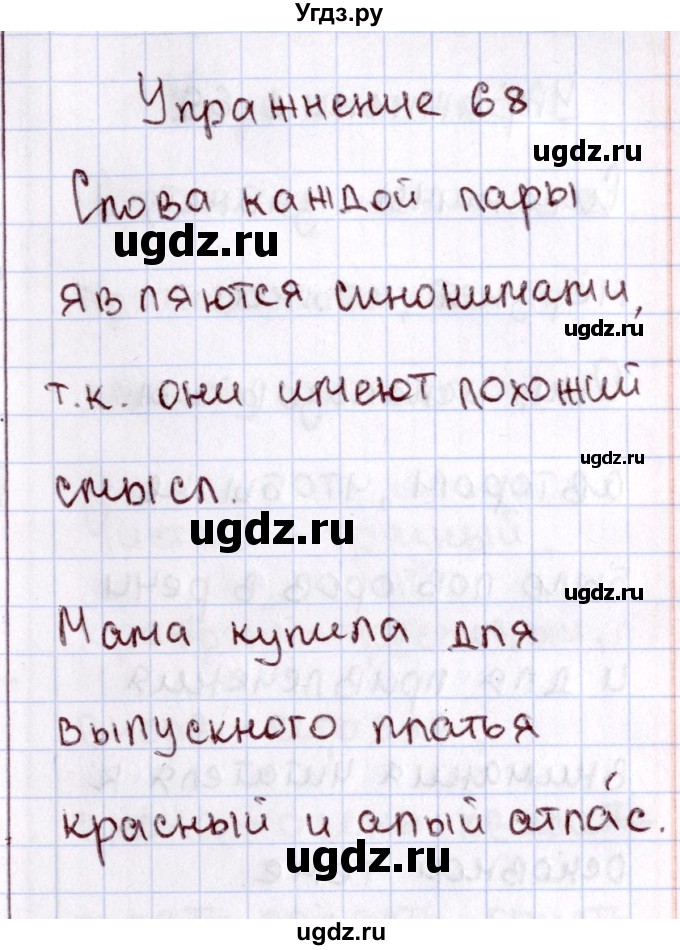 Угдз.ру
Упражнение 68
ugdz.ru
Слова каждой пары
ugdz.ru
являются синонимами,
ugdz.ru
т.к. они имеют похожий
ugdz.ru
смысл.
ugdz.ru
ugdz.ru
Мама купила для
ugdz.ru
выпускного платья
красный и алый атла́с.
ugdz.ru
ugdz.ru
ugdz.ru